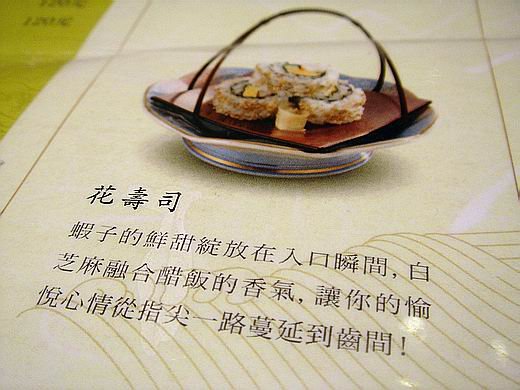 120元
120元
花壽司
蝦子的鮮甜綻放在入口瞬間，白
芝麻融合醋飯的香氣，讓你的愉
悅心情從指尖一路蔓延到齒間！